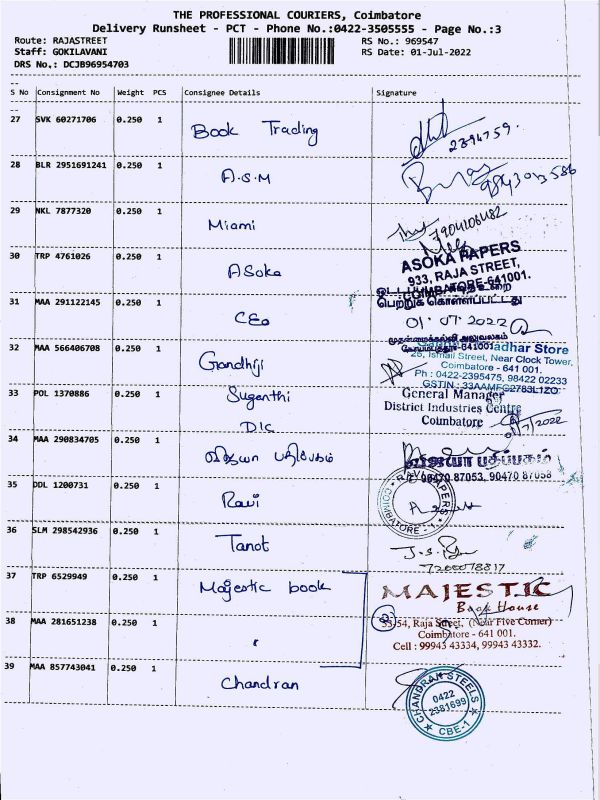 THE PROFESSIONAL COURIERS, Coimbatore
Delivery Runsheet - PCT - Phone No.:0422-3505555 - Page No.:3
Route: RAJASTREET
RS No.: 969547
Staff: GOKILAVANI
RS Date: 01-Jul-2022
DRS No.: DCJB96954703
S No Consignment No Weight PCS Consignee Details Signature
27 SVK 60271706 0.250 1 Book Trading
2394759.
28 BLR 2951691241 0.250 1 A.S.M
9843013586
29 NKL 7877320 0.250 1 Miami
7904106482
30 TRP 4761026 0.250 1 ASoka
ASOKA PAPERS
933, RAJA STREET,
COIMBATORE-641001.
31 MAA 291122145 0.250 1 CEO
பெற்றுக் கொள்ளப்பட்டது
01.07.2022
முதன்மைக்கல்வி அலுவலகம்
32 MAA 566406708 0.250 1 Gandhiji
adhar Store
25, Ismail Street, Near Clock Tower,
Coimbatore - 641 001.
Ph : 0422-2395475, 98422 02233
GSTIN : 33AAMFG2783L1ZO
33 POL 1370886 0.250 1 Suganthi
DIC
General Manager
District Industries Centre
Coimbatore
1/7/2022
34 MAA 290834705 0.250 1 விஜயா பதிப்பகம்
விஜயா பதிப்பகம்
90470 87053, 90470 87058
35 DDL 1200731 0.250 1 Ravi
RAVI PAPERS
COIMBATORE - 1
36 SLM 298542936 0.250 1 Tanot
7200078817
37 TRP 6529949 0.250 1 Majestic book
MAJESTIC
Book House
38 MAA 281651238 0.250 1 "
53-54, Raja Street, (Near Five Corner)
Coimbatore - 641 001.
Cell : 99943 43334, 99943 43332.
39 MAA 857743041 0.250 1 Chandran
CHANDRAN STEELS
0422
2381699
CBE-1